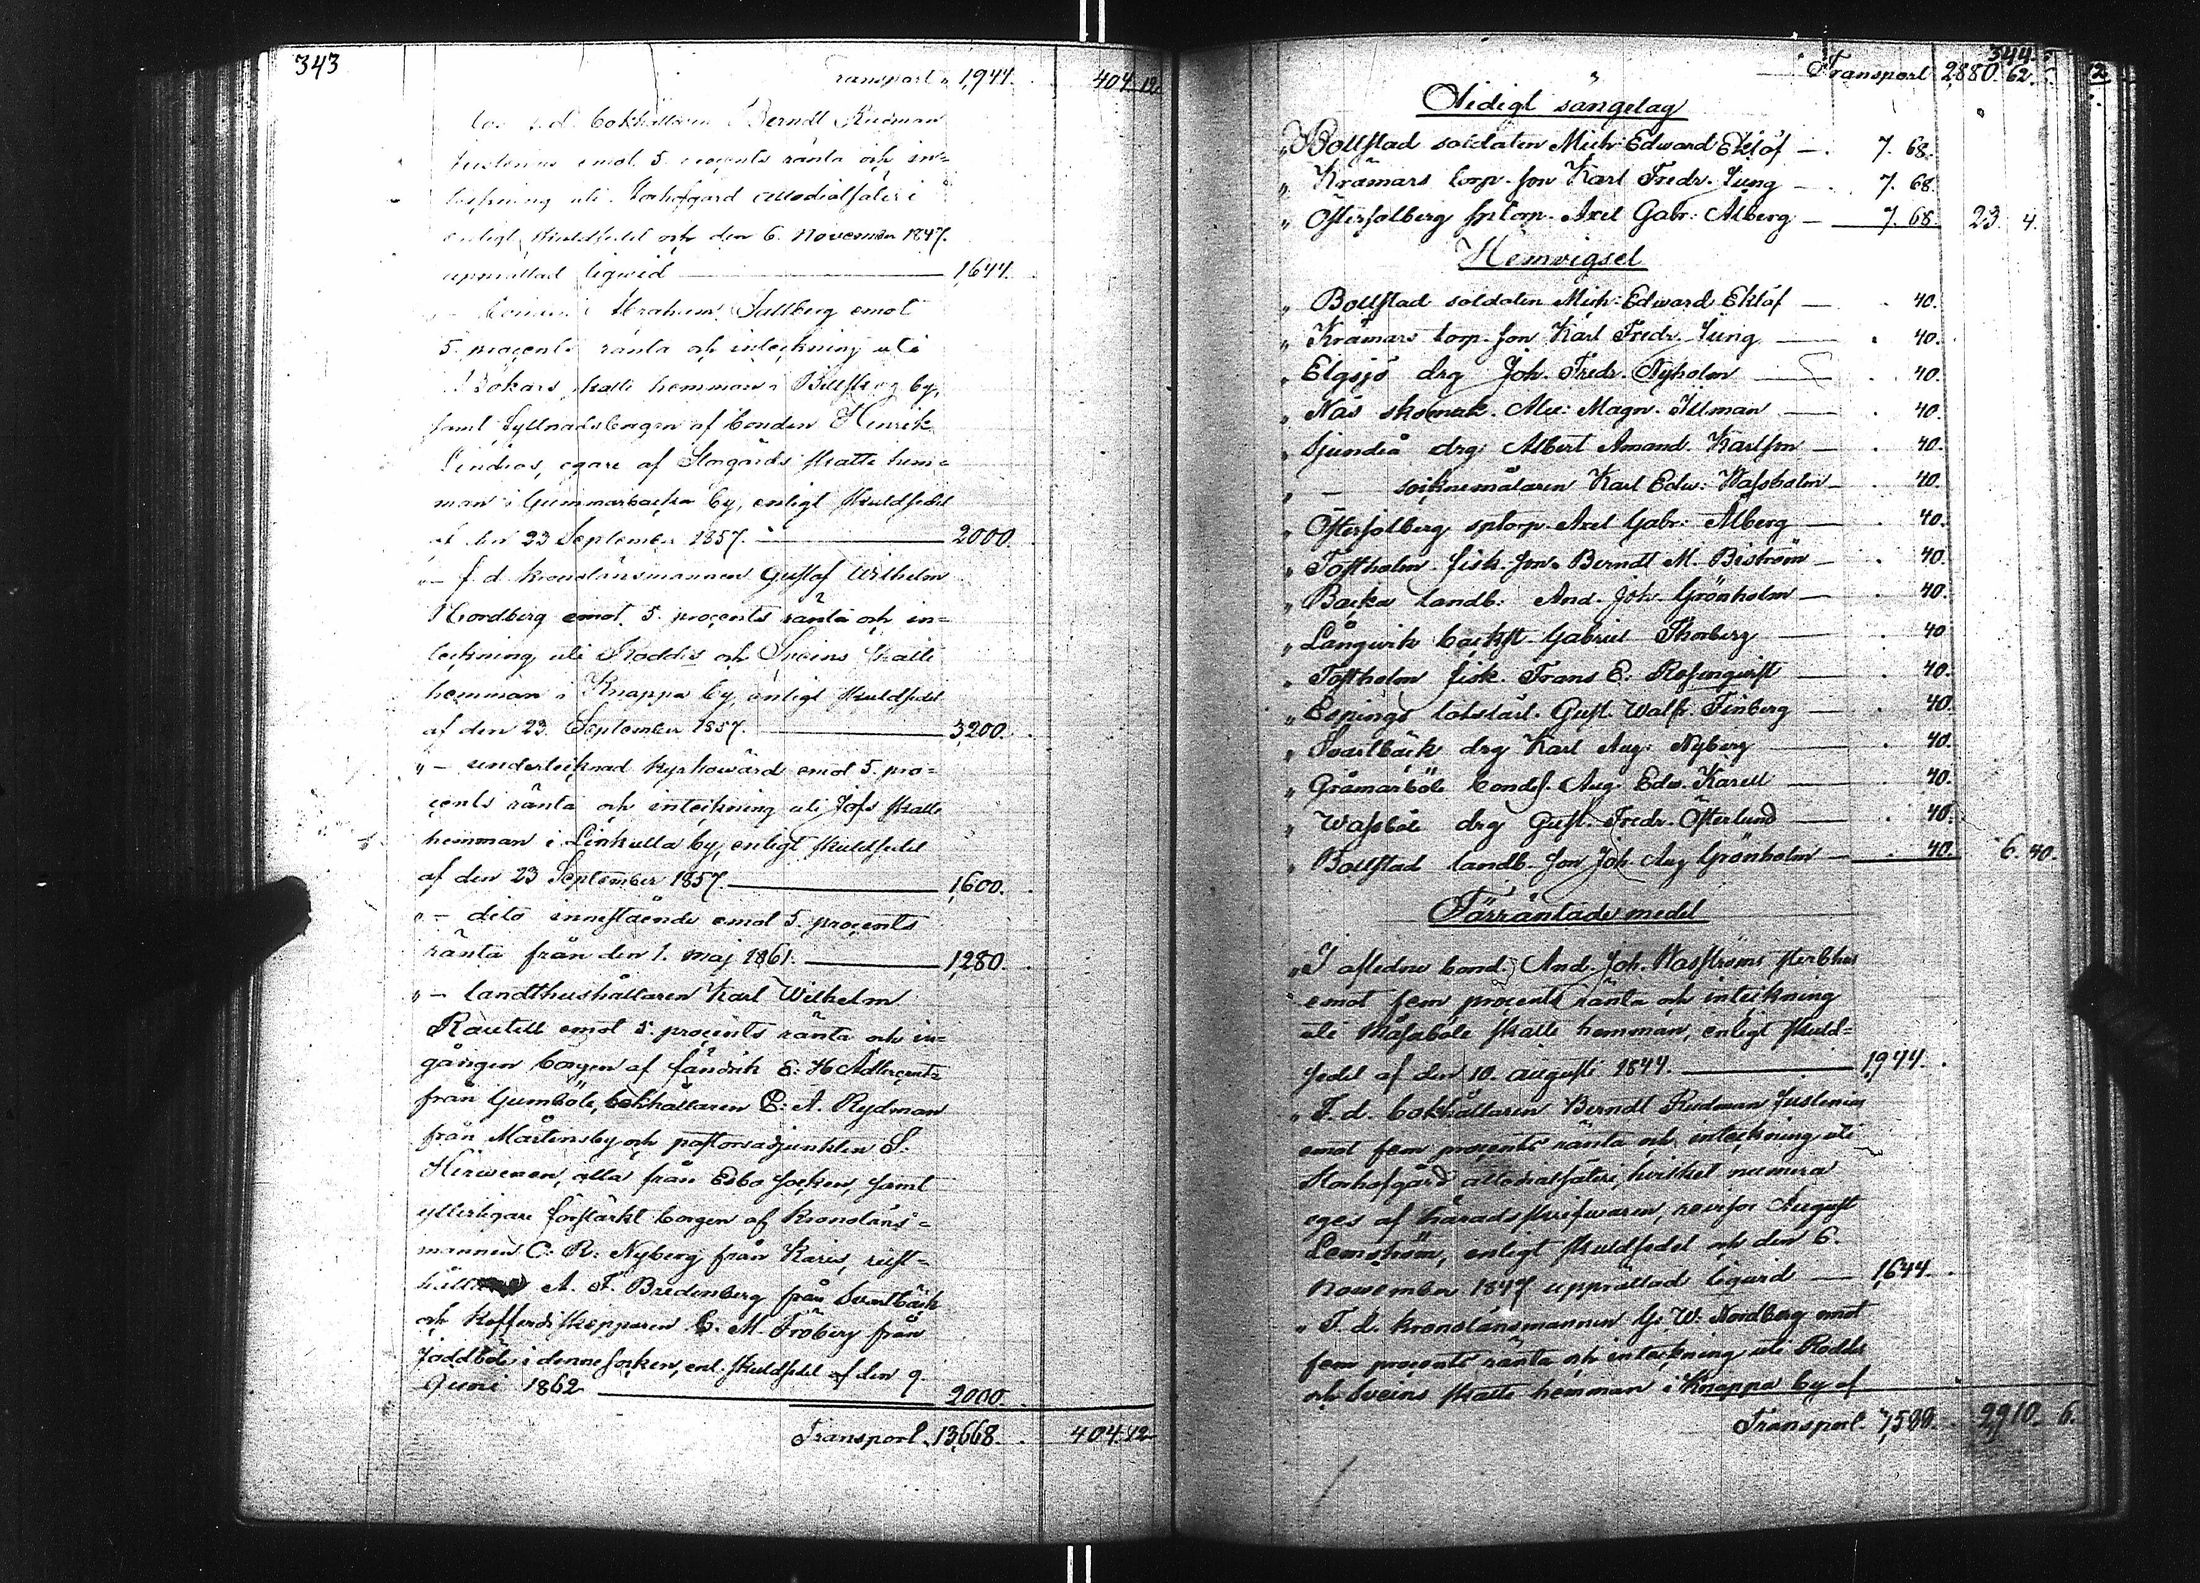 343
Transport 1,944. 404 12
hos f. d. bokhållaren Berndt Rudman
Juslenius emot 5. procents ränta och in-
teckning uti Storhofgård allodialsäteri
enligt skuldsedel och den 6. November 1847.
upprättad liqvid 1,644.
" — bonden Abraham Sallberg emot
5. procents ränta och inteckning uti
Bökars skatte hemman i Billskog by,
samt fyllnadsborgen af bonden Henrik
Lindros, egare af Storgårds skatte hem-
man i Gummarbacka by, enligt skuldsedel
af den 23 September 1857. 2000.
" — f. d. kronolänsmannen Gustaf Wilhelm
Nordberg emot 5. procents ränta och in-
teckning uti Roddis och Sveins skatte
hemman i Knappa by, enligt skuldsedel
af den 23. September 1857. 3,200.
" — undertecknad kyrkowärd emot 5. pro-
cents ränta och inteckning uti Jofs skatte
hemman i Linkulla by, enligt skuldsedel
af den 23 September 1857. 1,600.
" — dito innestående emot 5. procents
ränta från den 1. maj 1861. 1,280.
" — landthushållaren Karl Wilhelm
Rautell emot 5. procents ränta och in-
gången borgen af fändrik E: H Adlercreutz
från Gumböle, bokhållaren C: A. Rydman
från Mårtensby och pastorsadjunkten S.
Hirwenen, alla från Esbo socken, samt
ytterligare förstärkt borgen af kronoläns-
mannen C: R: Nyberg från Karis, rust-
A. F. Bredenberg från Svartbäck
och kofferdiskepparen C. M. Fröberg från
Joddböle i denne socken, enl. skuldsedel af den 9.
Juni 1862 2000.
Transport 13,668. 404 12
344.
Transport 2,880. 62.
Ledigt sängelag
" Bollstad soldaten Mich: Edward Eklöf — 7. 68.
" Krämars torp. son Karl Fredr. Ljung — 7. 68.
" Österfolberg sptorp. Axel Gabr: Alberg — 7. 68. 23. 4.
Hemvigsel
" Bollstad soldaten Mich: Edward Eklöf — 40.
" Krämars torp. son Karl Fredr. Ljung — 40.
" Elgsjö drg Joh. Fredr. Nyholm — 40.
" Näs skomak. Alex: Magn. Illman — 40.
" Sjundeå drg Albert Amand. Karlson — 40.
" — socknemålaren Karl Edw: Wassholm — 40.
" Österfolberg sptorp. Axel Gabr: Alberg — 40.
" Tostholm fisk. son. Berndt M. Biström — 40.
" Backa landb: And. Joh. Grönholm — 40.
" Långwik backst. Gabriel Thorberg — 40.
" Tostholm fisk. Frans E. Rosenqvist — 40.
" Espings lotslärl. Gust. Walfr. Finberg — 40.
" Svartbäck drg Karl Aug: Nyberg — 40.
" Gråmarböle bondes. Aug. Edw. Karell — 40.
" Wassböle drg Gust. Fredr. Österlund — 40.
" Bollstad landb. son Joh. Aug Grönholm — 40. 6. 40.
Förräntade medel
" I aflidne bond. And. Joh. Wasströms sterbhus
emot fem procents ränta och inteckning
uti Måsaböle skatte hemman, enligt skuld-
sedel af den 10. augusti 1844. 1,944.
" F. d. bokhållaren Berndt Rudman Juslenius
emot fem procents ränta och inteckning uti
Storhofgård allodialsäteri, hvilket numera
eges af häradsskrifwaren, revisor August
Lemström, enligt skuldsedel och den 6.
November 1847 upprättad liqvid — 1,644.
" F. d. kronolänsmannen G: W: Nordberg emot
fem procents ränta och inteckning uti Roddis
och Sveins skatte hemman i Knappa by af
Transport. 7,588. 2,910. 6.